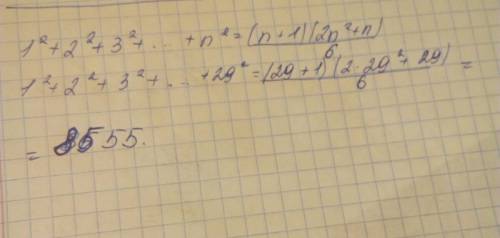 1² + 2² + 3² + ... + n² = (n+1)(2n²+n)/6
1² + 2² + 3² + ... + 29² = (29+1)(2·29²+29)/6 =
= 8555.